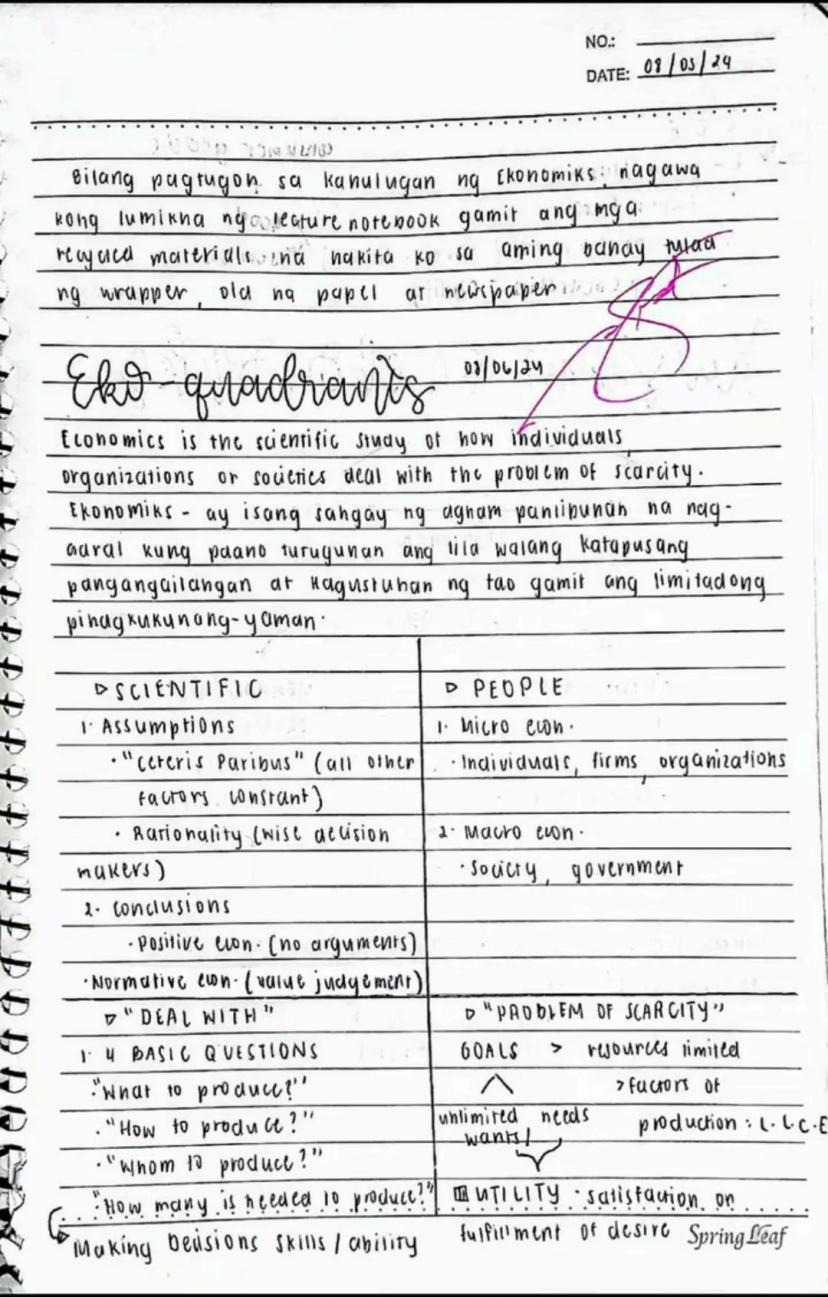 NO.:
DATE: 08/05/24
Bilang pagtugon sa kahulugan ng Ekonomiks, nagawa
kong lumikha ng lecture notebook gamit ang mga
recycled materials na nakita ko sa aming bahay tulad
ng wrapper, old na papel at newspaper
Eko-quadrants 08/06/24
Economics is the scientific study of how individuals,
organizations or societies deal with the problem of scarcity.
Ekonomiks - ay isang sangay ng agham panlipunan na nag-
aaral kung paano tutugunan ang tila walang katapusang
pangangailangan at kagustuhan ng tao gamit ang limitadong
pinagkukunang-yaman.
▷ SCIENTIFIC
1. Assumptions
• "Ceteris Paribus" (all other
factors constant)
• Rationality (wise decision
makers)
2. Conclusions
• Positive econ. (no arguments)
• Normative econ. (value judgement)
▷ PEOPLE
1. Micro econ.
• Individuals, firms, organizations
2. Macro econ.
• Society, government
▷ "DEAL WITH"
1. 4 BASIC QUESTIONS
• "What to produce?"
• "How to produce?"
• "Whom to produce?"
"How many is needed to produce?"
Making Decisions skills/ability
▷ "PROBLEM OF SCARCITY"
GOALS > resources limited
> factors of
production: L.L.C.E
unlimited needs
wants/
UTILITY • satisfaction or
fulfillment of desire
Spring Leaf